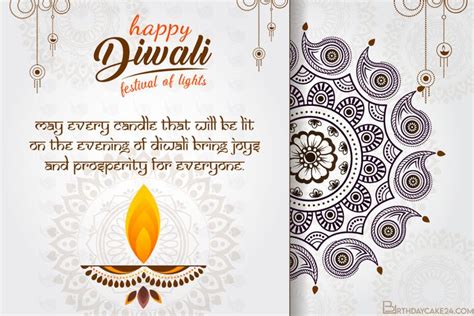 happy
Diwali
festival of lights
may every candle that will be lit
on the evening of diwali bring joys
and prosperity for everyone.
BIRTHDAYCAKE24.COM